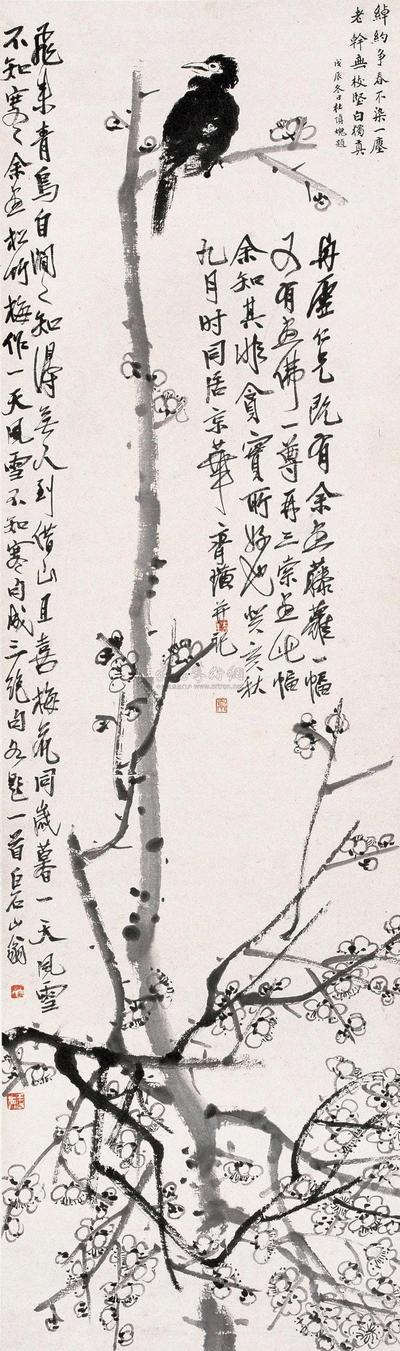 綽約爭春不染一塵
老幹無枝堅白獨真
戊辰冬日杜慎媿題
冉虛仁兄既有余畫藤蘿一幅
又有畫佛一尊再三索畫此幅
余知其非貪實所好也癸亥秋
九月时同居京華齊璜并記
飛来青鳥自閒〻知得無人到借山且喜梅花同歲暮一天風雪
不知寒余畫松竹梅作一天風雪不知寒句成三絕句各題一首白石山翁
www.artron.net